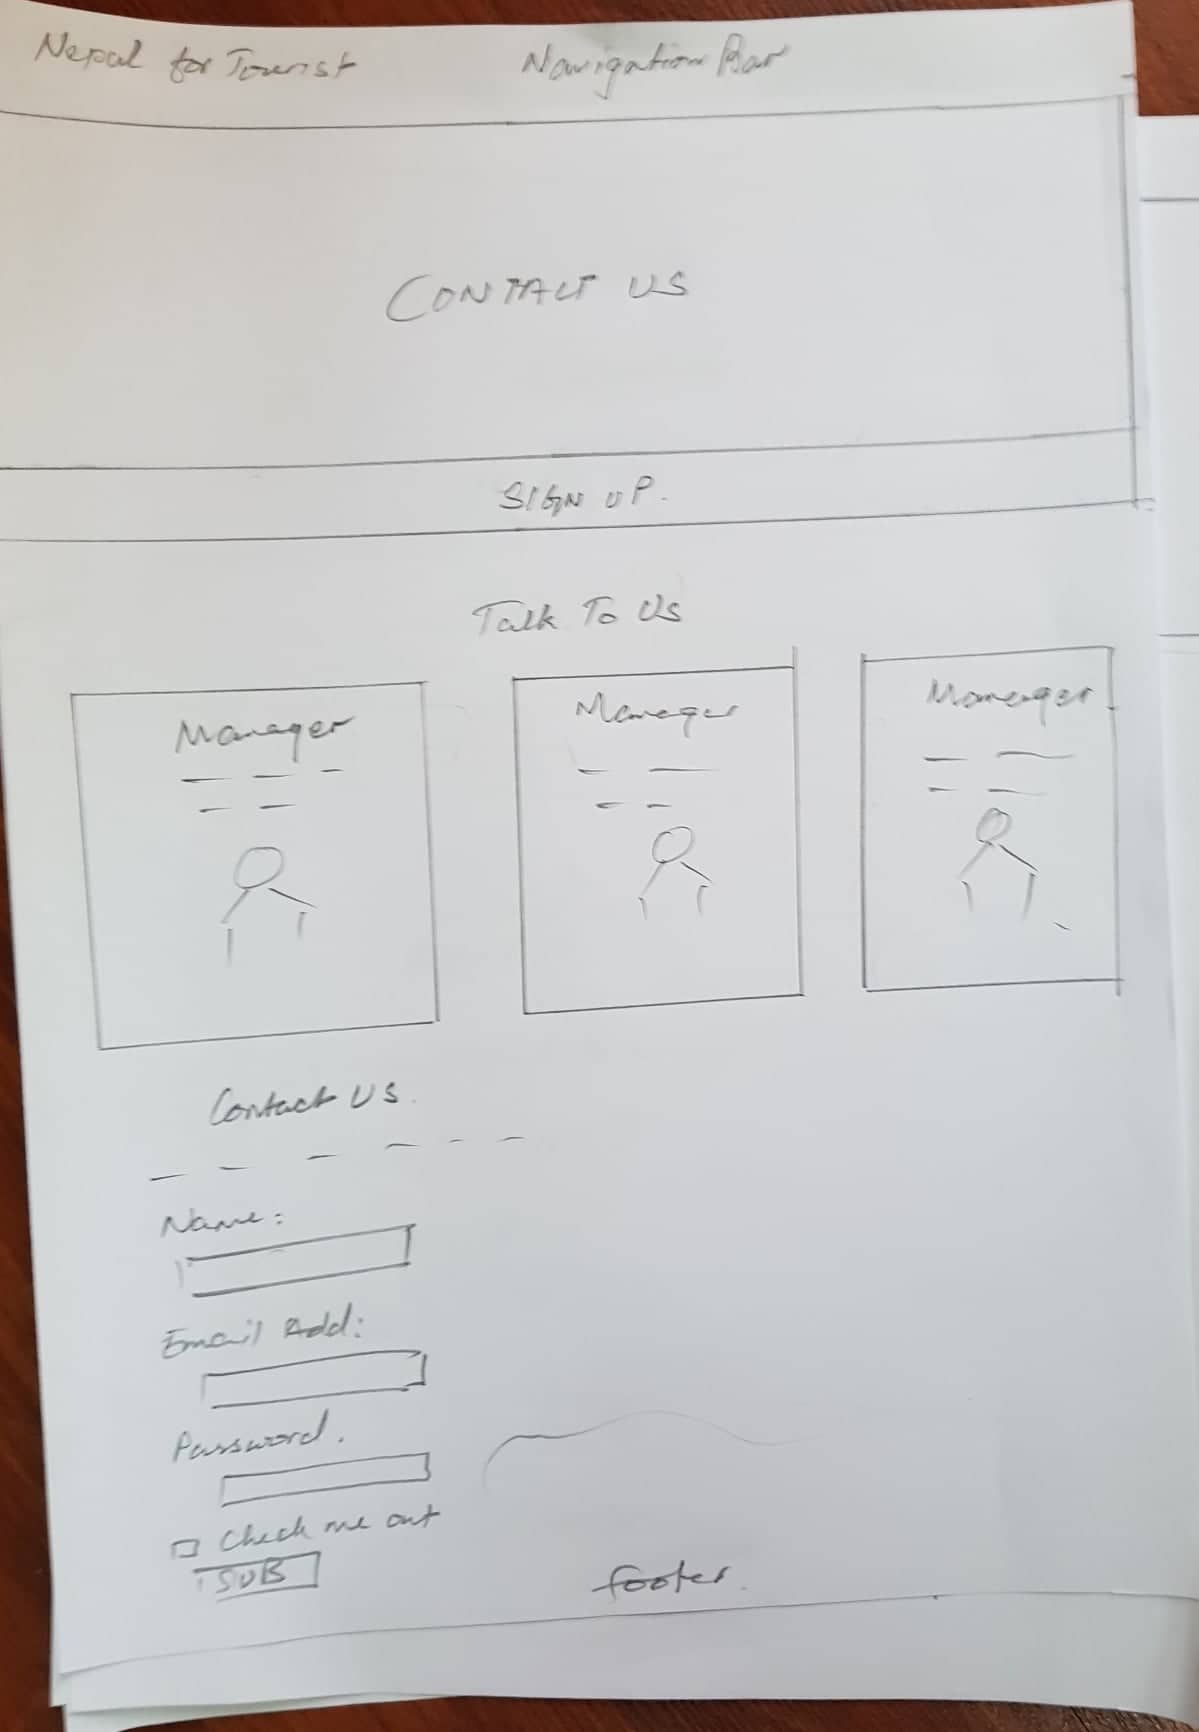 Nepal for Tourist Navigation Bar
CONTACT US
SIGN UP.
Talk To Us
Manager Manager Manager
Contact US.
Name:
Email Add:
Password.
Check me out
SUB
footer.